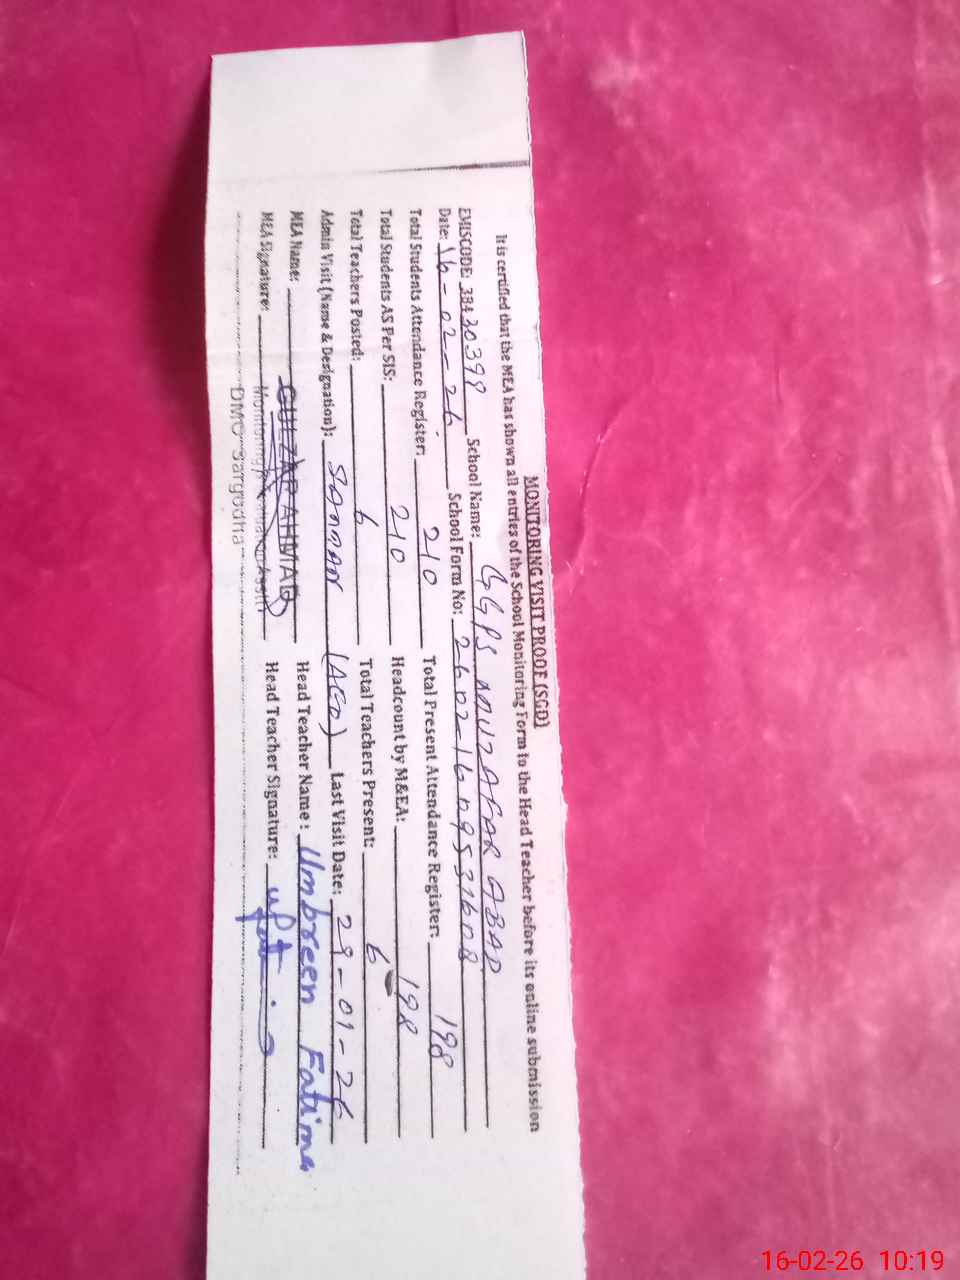 MONITORING VISIT PROOF (SGD)
It is certified that the MEA has shown all entries of the School Monitoring Form to the Head Teacher before its online submission
EMISCODE: 38430398 School Name: GGPS MUZAFAR ABAD
Date: 16-02-26 School Form No:
Total Students Attendance Register: 210 Total Present Attendance Register: 198
Total Students AS Per SIS: 210 Headcount by M&EA: 198
Total Teachers Posted: 6 Total Teachers Present: 6
Admin Visit (Name & Designation): (AEO) Last Visit Date: 29-01-26
MEA Name: GULZAR AHMAD Head Teacher Name: Umbreen Fatima
MEA Signature: Head Teacher Signature:
DMO Sargodha
16-02-26 10:19